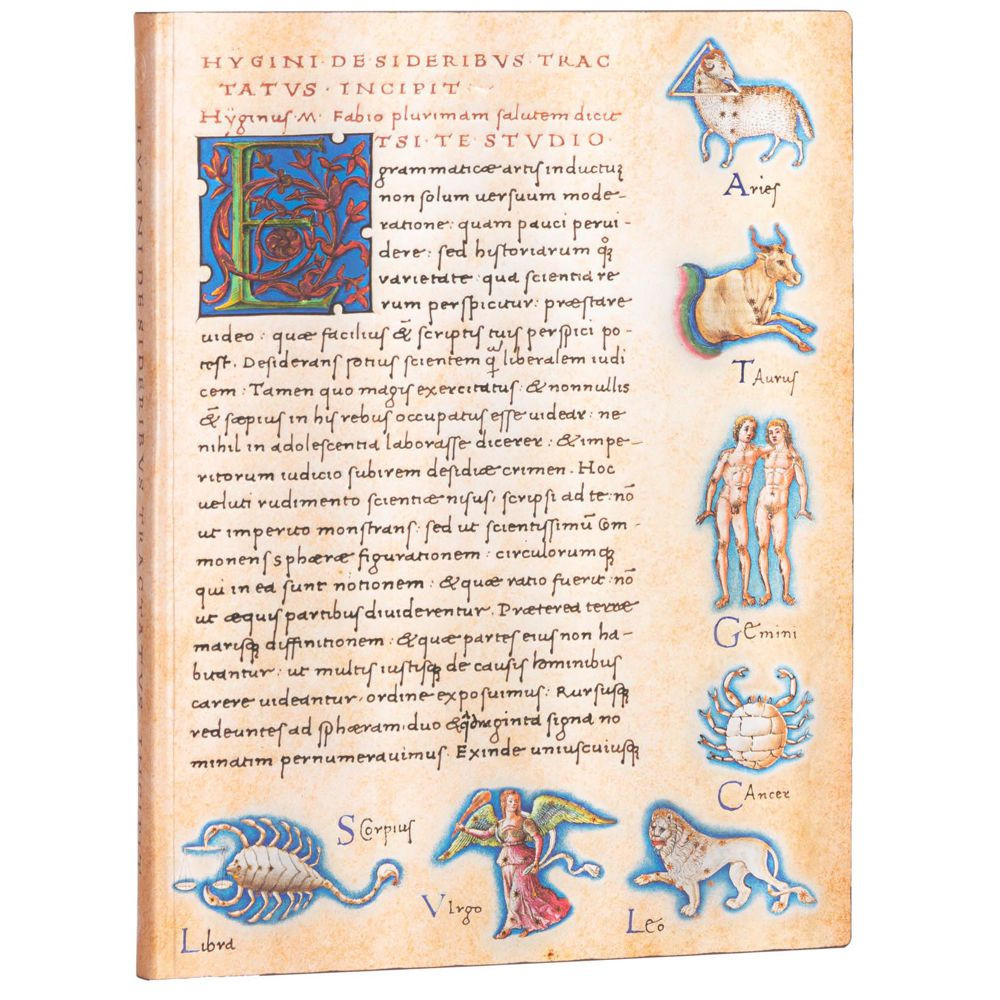 HYGINI·DE·SIDERIBVS·TRAC
TATVS·INCIPIT
Hÿginus·M· Fabio plurimam salutem dicit
ETSI·TE·STVDIO·
grammaticæ artis inductuꝫ
non solum versuum mode-
ratione: quam pauci perui-
dere: sed historiarum qͦꝫ
varietate: qua scientia re
rum perspicitur: præstare
uideo: quæ facilius & scriptis tuis perspici po-
test. Desiderans potius scientem qͣ liberalem iudi
cem: Tamen quo magis exercitatus: & nonnullis
& sæpius in his rebus occupatus esse uidear: ne
nihil in adolescentia laborasse dicerer: & impe-
ritorum iudicio subirem desidiæ crimen. Hoc
ueluti rudimento scientiæ nisus, scripsi ad te: nō
ut imperito monstrans: sed ut scientissimū Com-
monens sphæræ figurationem: circulorumqꝫ
qui in ea sunt notionem: & quæ ratio fuerit: nō
ut æquis partibus diuiderentur. Præterea terræ
marisqꝫ diffinitionem: & quæ partes eius non ha-
bitantur: ut multis iustisqꝫ de causis hominibus
carere uideantur, ordine exposuimus: Rursusqꝫ
redeuntes ad sphæram, duo & qͣdraginta signa no
minatim pernumerauimus. Exinde uniuscuiusqꝫ
Aries
TAurus
GEmini
CAncer
LEo
VIrgo
SCorpius
Libra
HYGINI DE SIDERIBVS TRACTATVS